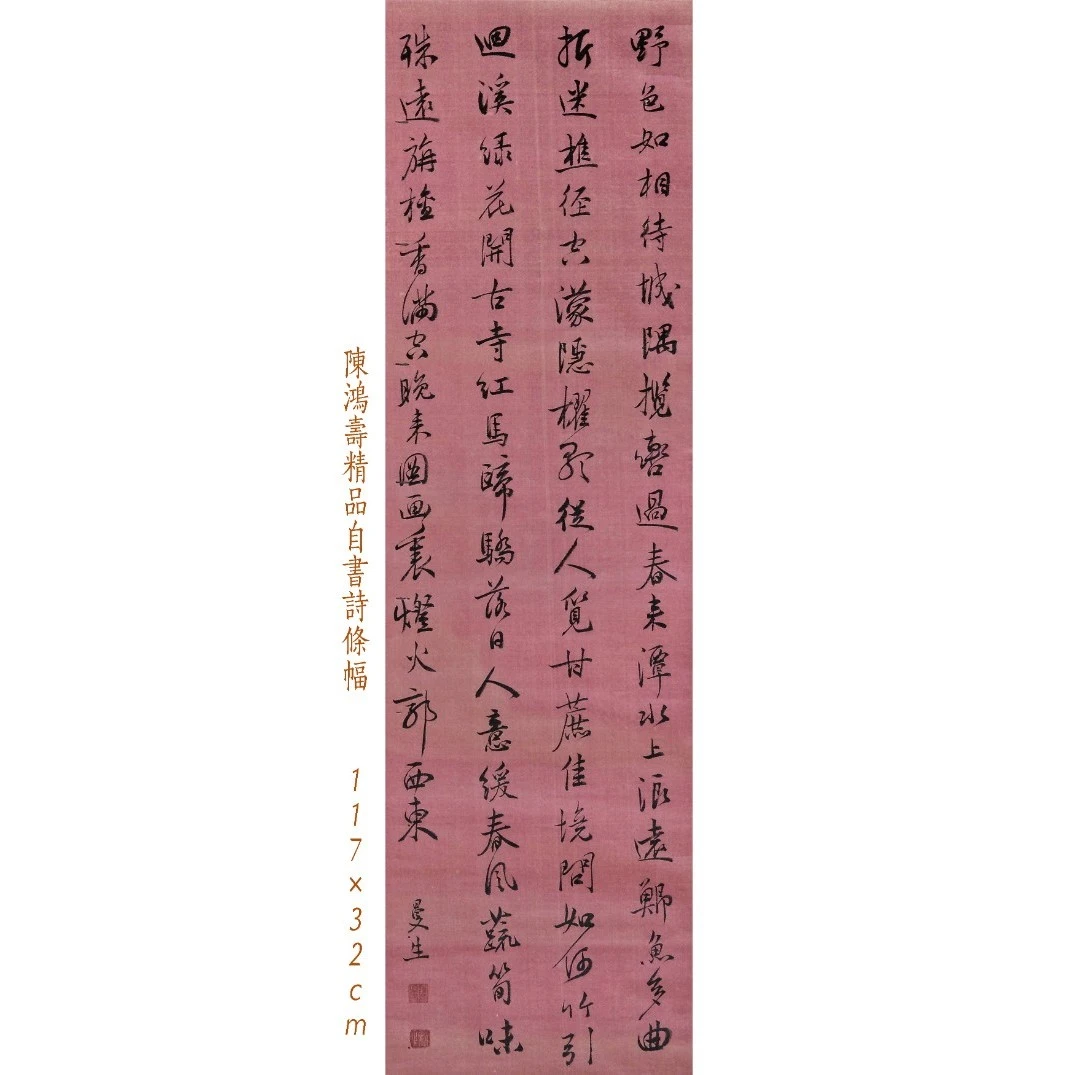 野色如相待城隅攬轡過春来潭水上派遠鯽魚多曲
折迷樵径空濛隱櫂歌從人覓甘蔗佳境問如何竹引
迴溪緑花開古寺紅馬蹄驕落日人意緩春風蔬筍味
殊遠旃檀香滿空晚来圖画裏燈火郭西東
曼生
陳鴻壽精品自書詩條幅 117×32cm